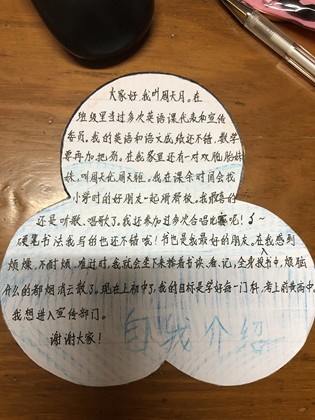 大家好,我叫周天月。在
班级里当过多次英语课代表和宣传
委员。我的英语和语文成绩还不错,数学
要再加把劲。在我家里还有一对双胞胎妹
妹,叫周天优,周天雅。我在课余时间会找
小学时的好朋友一起滑滑板,我最喜的
还是听歌、唱歌了。我还参加过多次合唱比赛呢!
硬笔书法我写的也还不错哦!书也是我最好的朋友,在我感到
烦燥,不耐烦,难过时,我就会坐下来捧着书读、看、记,全身投书中,烦恼
什么的都烟消云散了。现在上初中了,我的目标是学好每一门科,考上前黄高中,
我想进入宣传部门。
谢谢大家!
自我介绍